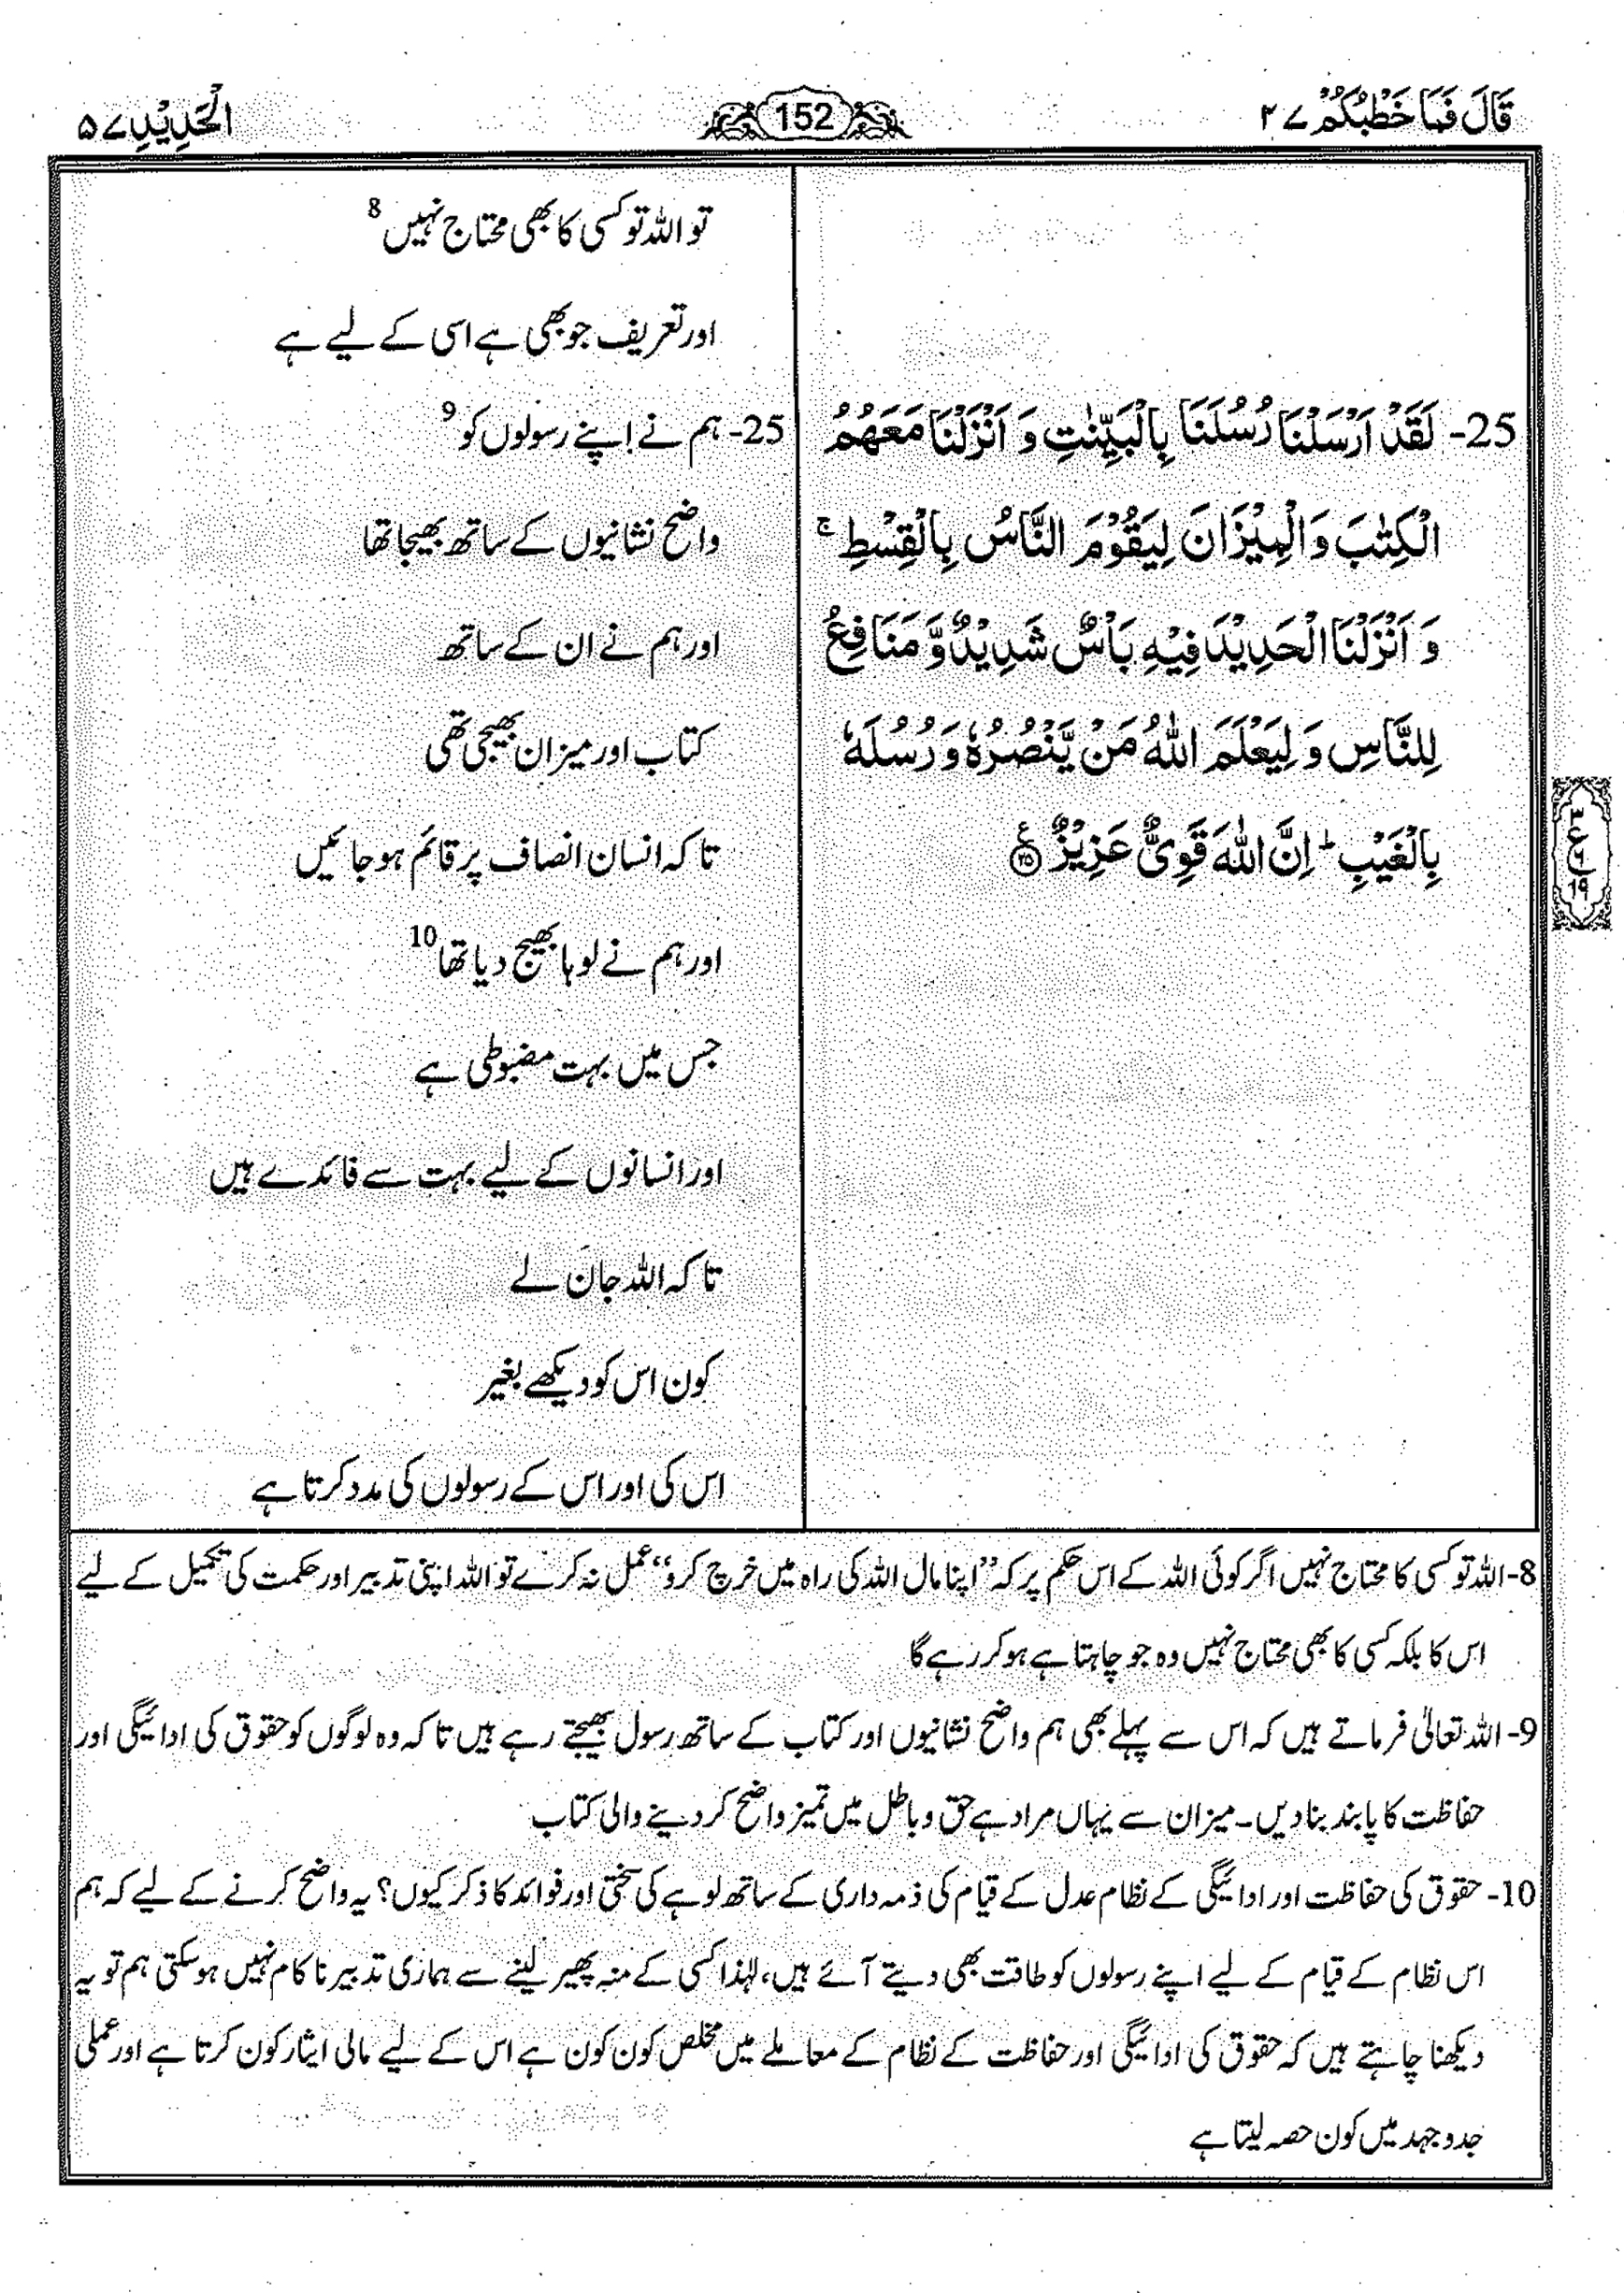 قَالَ فَمَا خَطْبُكُمْ ۲۷
152
الْحَدِيْدِ ۵۷
25- لَقَدْ اَرْسَلْنَا رُسُلَنَا بِالْبَيِّنٰتِ وَ اَنْزَلْنَا مَعَهُمُ
الْكِتٰبَ وَ الْمِيْزَانَ لِيَقُوْمَ النَّاسُ بِالْقِسْطِ ۚ
وَ اَنْزَلْنَا الْحَدِيْدَ فِيْهِ بَاْسٌ شَدِيْدٌ وَّ مَنَافِعُ
لِلنَّاسِ وَ لِيَعْلَمَ اللّٰهُ مَنْ يَّنْصُرُهٗ وَ رُسُلَهٗ
بِالْغَيْبِ ؕ اِنَّ اللّٰهَ قَوِيٌّ عَزِيْزٌ ۲۵ ع
ع
۱۹
تو اللہ تو کسی کا بھی محتاج نہیں 8
اور تعریف جو بھی ہے اسی کے لیے ہے
25- ہم نے اپنے رسولوں کو 9
واضح نشانیوں کے ساتھ بھیجا تھا
اور ہم نے ان کے ساتھ
کتاب اور میزان بھیجی تھی
تا کہ انسان انصاف پر قائم ہو جائیں
اور ہم نے لوہا بھیج دیا تھا 10
جس میں بہت مضبوطی ہے
اور انسانوں کے لیے بہت سے فائدے ہیں
تا کہ اللہ جان لے
کون اس کو دیکھے بغیر
اس کی اور اس کے رسولوں کی مدد کرتا ہے
8- اللہ تو کسی کا محتاج نہیں اگر کوئی اللہ کے اس حکم پر کہ ”اپنا مال اللہ کی راہ میں خرچ کرو“ عمل نہ کرے تو اللہ اپنی تدبیر اور حکمت کی تکمیل کے لیے
اس کا بلکہ کسی کا بھی محتاج نہیں وہ جو چاہتا ہے ہو کر رہے گا
9- اللہ تعالیٰ فرماتے ہیں کہ اس سے پہلے بھی ہم واضح نشانیوں اور کتاب کے ساتھ رسول بھیجتے رہے ہیں تا کہ وہ لوگوں کو حقوق کی ادائیگی اور
حفاظت کا پابند بنا دیں۔ میزان سے یہاں مراد ہے حق و باطل میں تمیز واضح کر دینے والی کتاب
10- حقوق کی حفاظت اور ادائیگی کے نظام عدل کے قیام کی ذمہ داری کے ساتھ لوہے کی سختی اور فوائد کا ذکر کیوں؟ یہ واضح کرنے کے لیے کہ ہم
اس نظام کے قیام کے لیے اپنے رسولوں کو طاقت بھی دیتے آئے ہیں، لہٰذا کسی کے منہ پھیر لینے سے ہماری تدبیر ناکام نہیں ہو سکتی ہم تو یہ
دیکھنا چاہتے ہیں کہ حقوق کی ادائیگی اور حفاظت کے نظام کے معاملے میں مخلص کون کون ہے اس کے لیے مالی ایثار کون کرتا ہے اور عملی
جدوجہد میں کون حصہ لیتا ہے